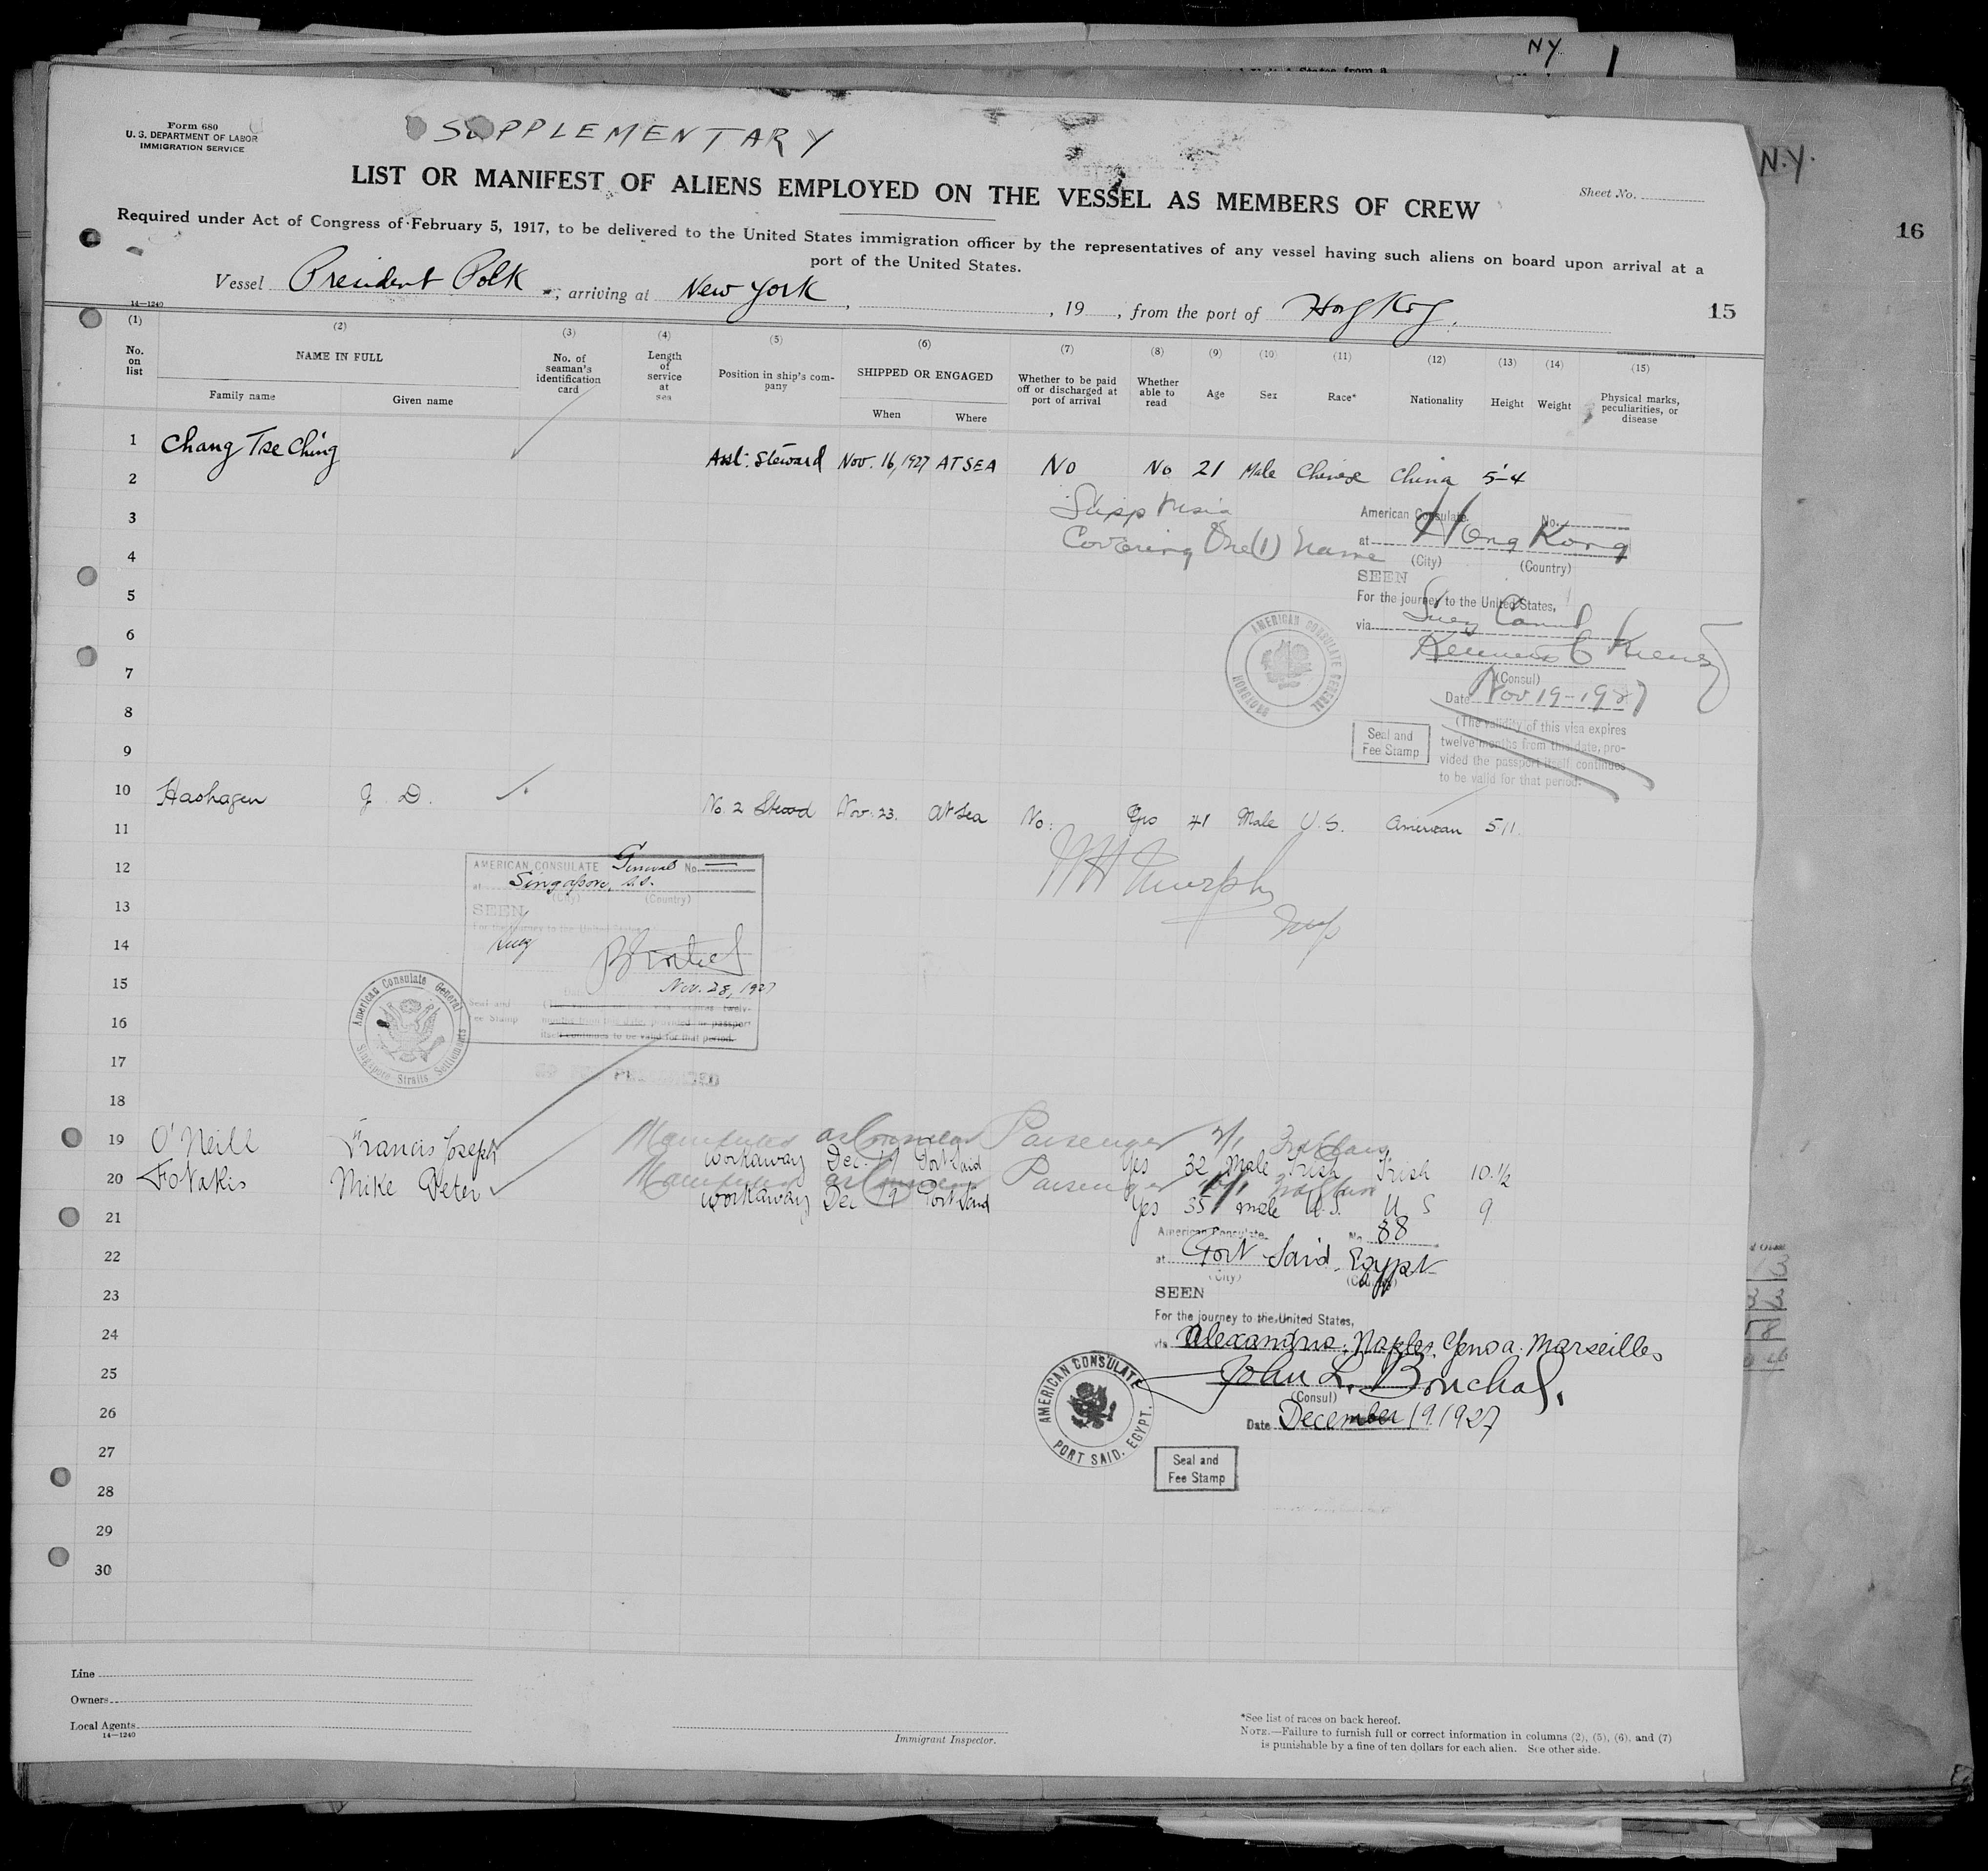 NY
Form 680
U. S. DEPARTMENT OF LABOR
IMMIGRATION SERVICE
SUPPLEMENTARY
N.Y.
LIST OR MANIFEST OF ALIENS EMPLOYED ON THE VESSEL AS MEMBERS OF CREW
Sheet No.
Required under Act of Congress of February 5, 1917, to be delivered to the United States immigration officer by the representatives of any vessel having such aliens on board upon arrival at a
port of the United States.
16
Vessel President Polk, arriving at New York, , 19 , from the port of Hong Kong.
15
14—1240
(1) (2) (3) (4) (5) (6) (7) (8) (9) (10) (11) (12) (13) (14) (15)
No. on list
NAME IN FULL
Family name
Given name
No. of seaman's identification card
Length of service at sea
Position in ship's company
SHIPPED OR ENGAGED
When
Where
Whether to be paid off or discharged at port of arrival
Whether able to read
Age
Sex
Race*
Nationality
Height
Weight
Physical marks, peculiarities, or disease
1 Chang Tse Ching Asst. Steward Nov. 16, 1927 AT SEA No No 21 Male Chinese China 5-4
2
3 Supp Visa
American Consulate. No.
Covering One (1) Name
at Hong Kong
4
(City) (Country)
SEEN
5
For the journey to the United States,
6
via Suez Canal
7
(Consul)
Date Nov 19-1927
8
(The validity of this visa expires
twelve months from this date, pro-
vided the passport itself continues
to be valid for that period.
Seal and
Fee Stamp
AMERICAN CONSULATE GENERAL
HONGKONG
9
10 Hashagen J. D. No. 2 Nov. 23. At Sea No. Yes 41 Male U.S. American 5 11.
11
W H Murphy
12
AMERICAN CONSULATE General No.
at Singapore, S.S.
(City) (Country)
13
SEEN
For the journey to the United States
14
Suez
Nov. 28, 1927
15
Seal and
Fee Stamp
16
months from this date, provided the passport
itself continues to be valid for that period.
American Consulate General
Singapore Straits Settlements
17
18
19 O'Neill Francis Joseph
Manifested as Passenger 3rd Class
workaway Dec. 19 Port Said Yes 32 Male Irish Irish 10.½
20 Fotakis Mike Peter
Manifested as Passenger
workaway Dec 19 Port Said Yes 35 male U.S. U S 9
21
American Consulate. No. 88
22
at Port Said, Egypt
(City) (Country)
23
SEEN
For the journey to the United States,
24
via Alexandria, Naples, Genoa, Marseilles
25
(Consul)
26
Date December 19, 1927
AMERICAN CONSULATE
PORT SAID, EGYPT.
27
Seal and
Fee Stamp
28
29
30
Line
Owners
Local Agents
14—1240
Immigrant Inspector.
*See list of races on back hereof.
NOTE.—Failure to furnish full or correct information in columns (2), (5), (6), and (7)
is punishable by a fine of ten dollars for each alien. See other side.